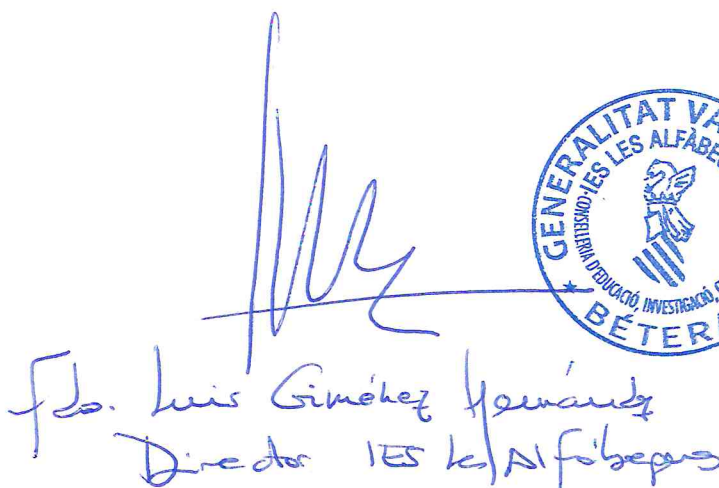 GENERALITAT VA
IES LES ALFÀBE
CONSELLERIA D'EDUCACIÓ, INVESTIGACIÓ, C
BÉTER
Fdo. Luis Giménez Hernández
Director IES les Alfàbegues